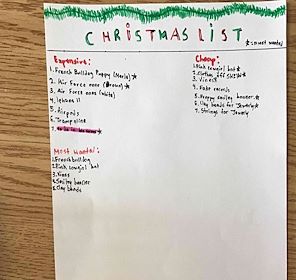 CHRISTMAS LIST
* = most wanted
Expensive:
1. French Bulldog Puppy (Merle) *
2. Air Force ones (Brown) *
3. Air Force ones (white)
5. Airpods
6. Trampoline
7.
Cheap:
1. Pink cowgirl hat *
2. Clothes off SHEIN *
3. Viness
4. Fake
5. Preppy smiley banner *
6. Clay beads for Jewerly *
7. Strings for Jewerly
Most Wanted:
1. French bulldog
2. Pink cowgirl hat
3.
4. Smiley bancier
5. Clay beads